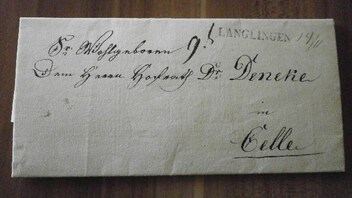 LANGLINGEN 14/11
Sr Wohlgeboren
Dem Herrn Hofrath Dr. Deneke
in
Celle